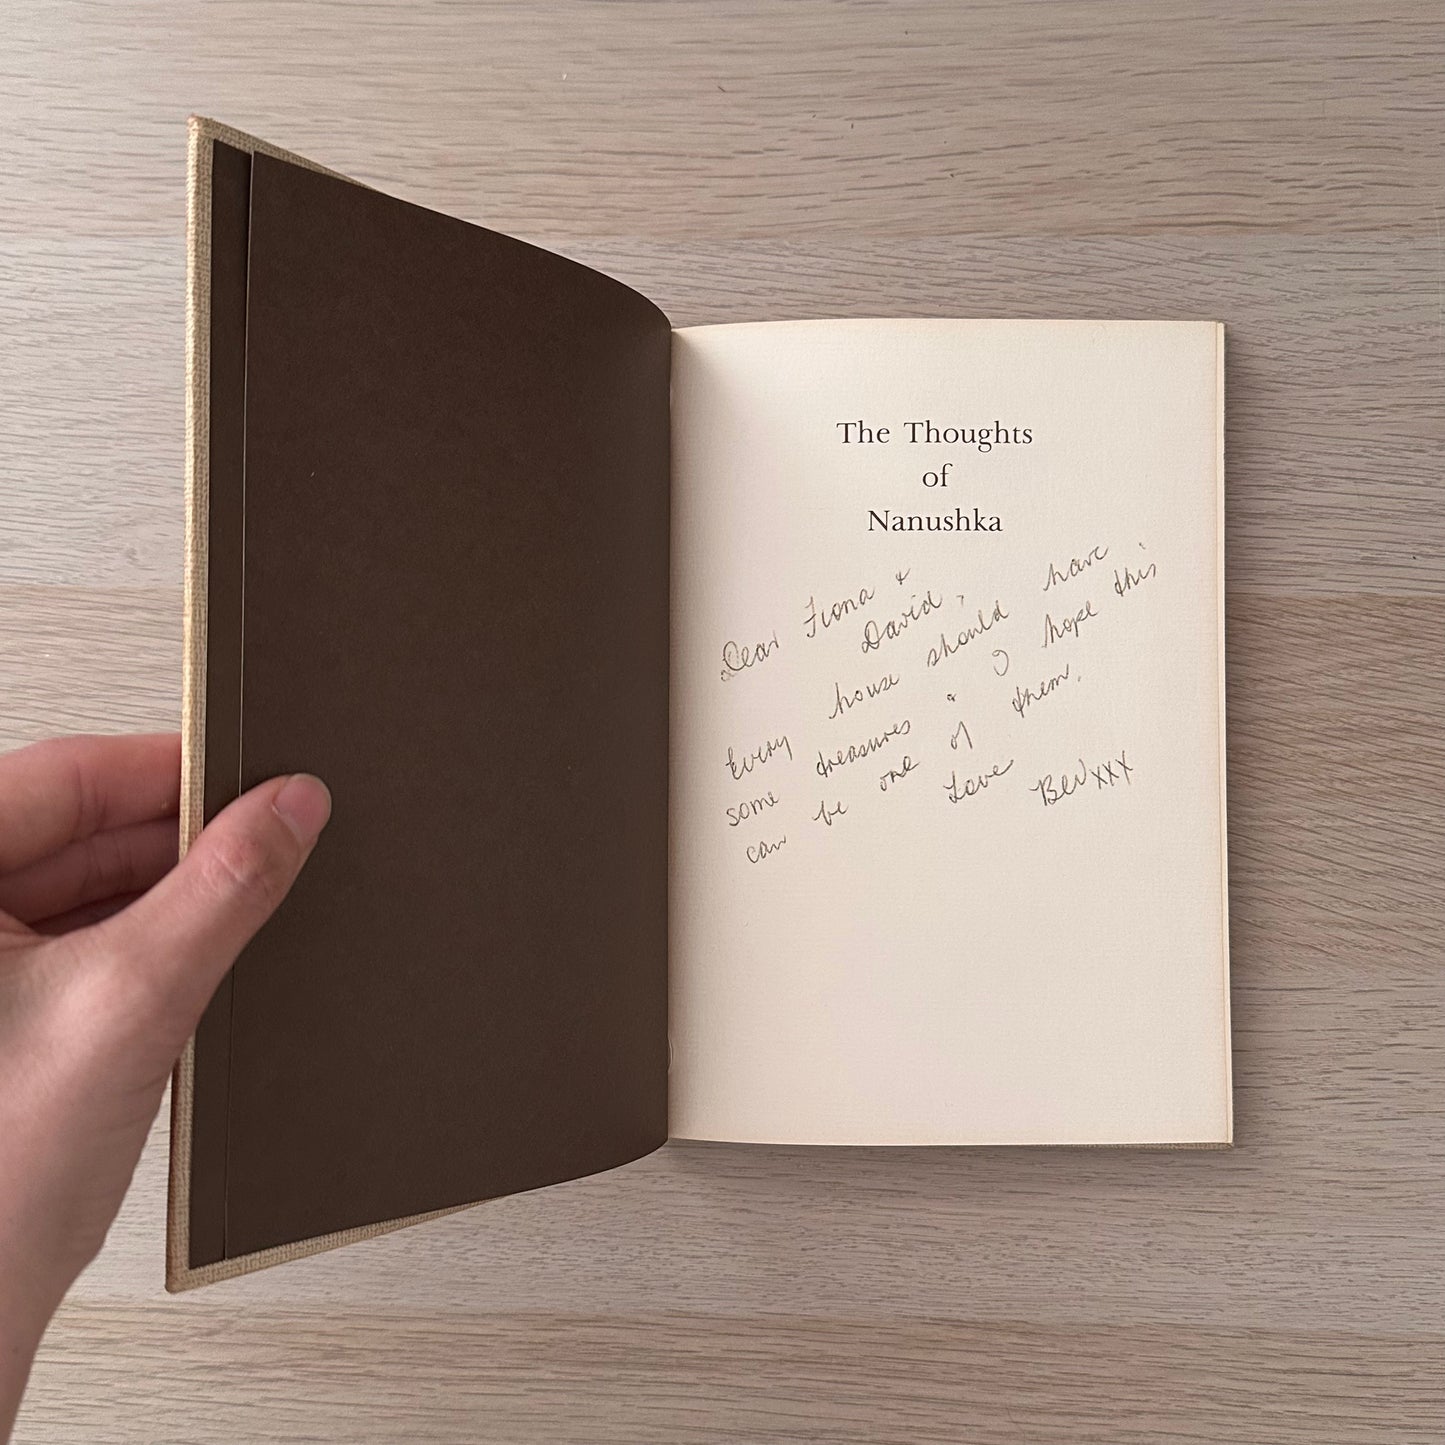 The Thoughts
of
Nanushka
Dear Fiona &
David,
Every house should have
some treasures & I hope this
can be one of them.
Love Bev xxx